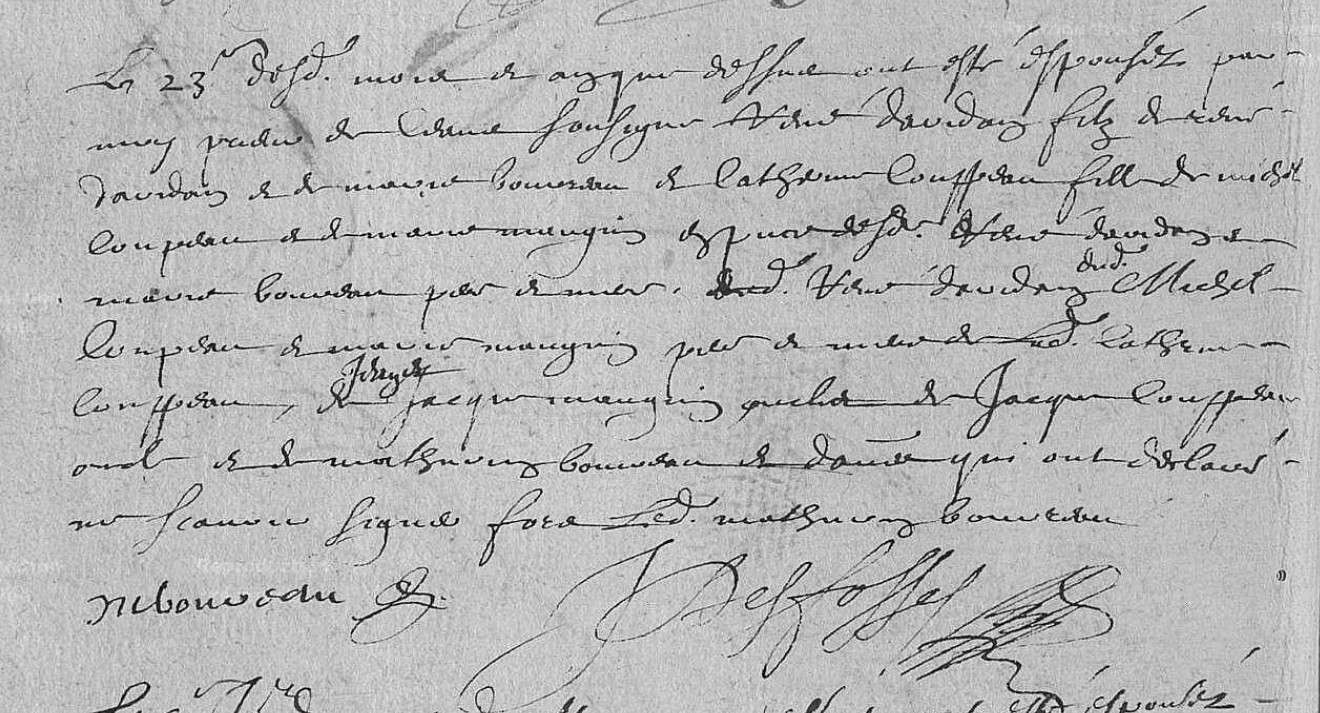 Le 23e desd. mois et an que dessus ont esté espousés par
moy prieur de soubsigné René davidan filz de rené
davidan et de marie bouvreau et Catherine Couppeau fille de michel
Coupeau et de marie maugin es presence desd. René davidan et
marie bouveau pere et mere dud. René davidan dud. Michel
Coupeau et marie maugin pere et mere de lad. Catherine
Couppeau, de jacque maugin oncle de Jacque Couppeau
oncle et de mathurin bouvreau et dautres qui ont declaré
ne scavoir signer fors led. mathurin bouvreau
m bouveau
Desfosses
espousés